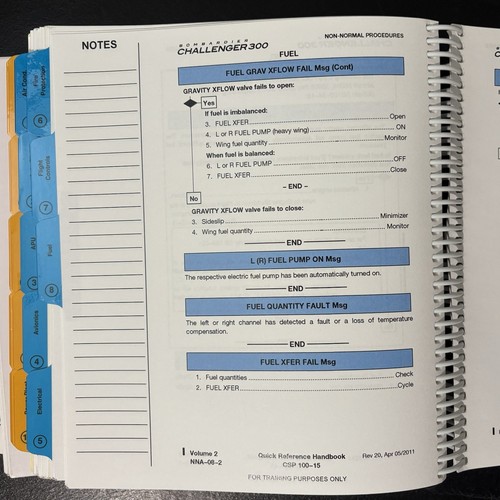 NOTES
BOMBARDIER
CHALLENGER 300
NON-NORMAL PROCEDURES
FUEL
FUEL GRAV XFLOW FAIL Msg (Cont)
GRAVITY XFLOW valve fails to open:
Yes
If fuel is imbalanced:
3. FUEL XFER Open
4. L or R FUEL PUMP (heavy wing) ON
5. Wing fuel quantity Monitor
When fuel is balanced:
6. L or R FUEL PUMP OFF
7. FUEL XFER Close
– END –
No
GRAVITY XFLOW valve fails to close:
3. Sideslip Minimizer
4. Wing fuel quantity Monitor
END
L (R) FUEL PUMP ON Msg
The respective electric fuel pump has been automatically turned on.
END
FUEL QUANTITY FAULT Msg
The left or right channel has detected a fault or a loss of temperature
compensation.
END
FUEL XFER FAIL Msg
1. Fuel quantities Check
2. FUEL XFER Cycle
Volume 2
NNA–08–2
Quick Reference Handbook
CSP 100–15
Rev 20, Apr 05/2011
FOR TRAINING PURPOSES ONLY
Air Cond
Fire
6
Flight
Controls
7
APU
3
Fuel
8
Avionics
4
Electrical
5